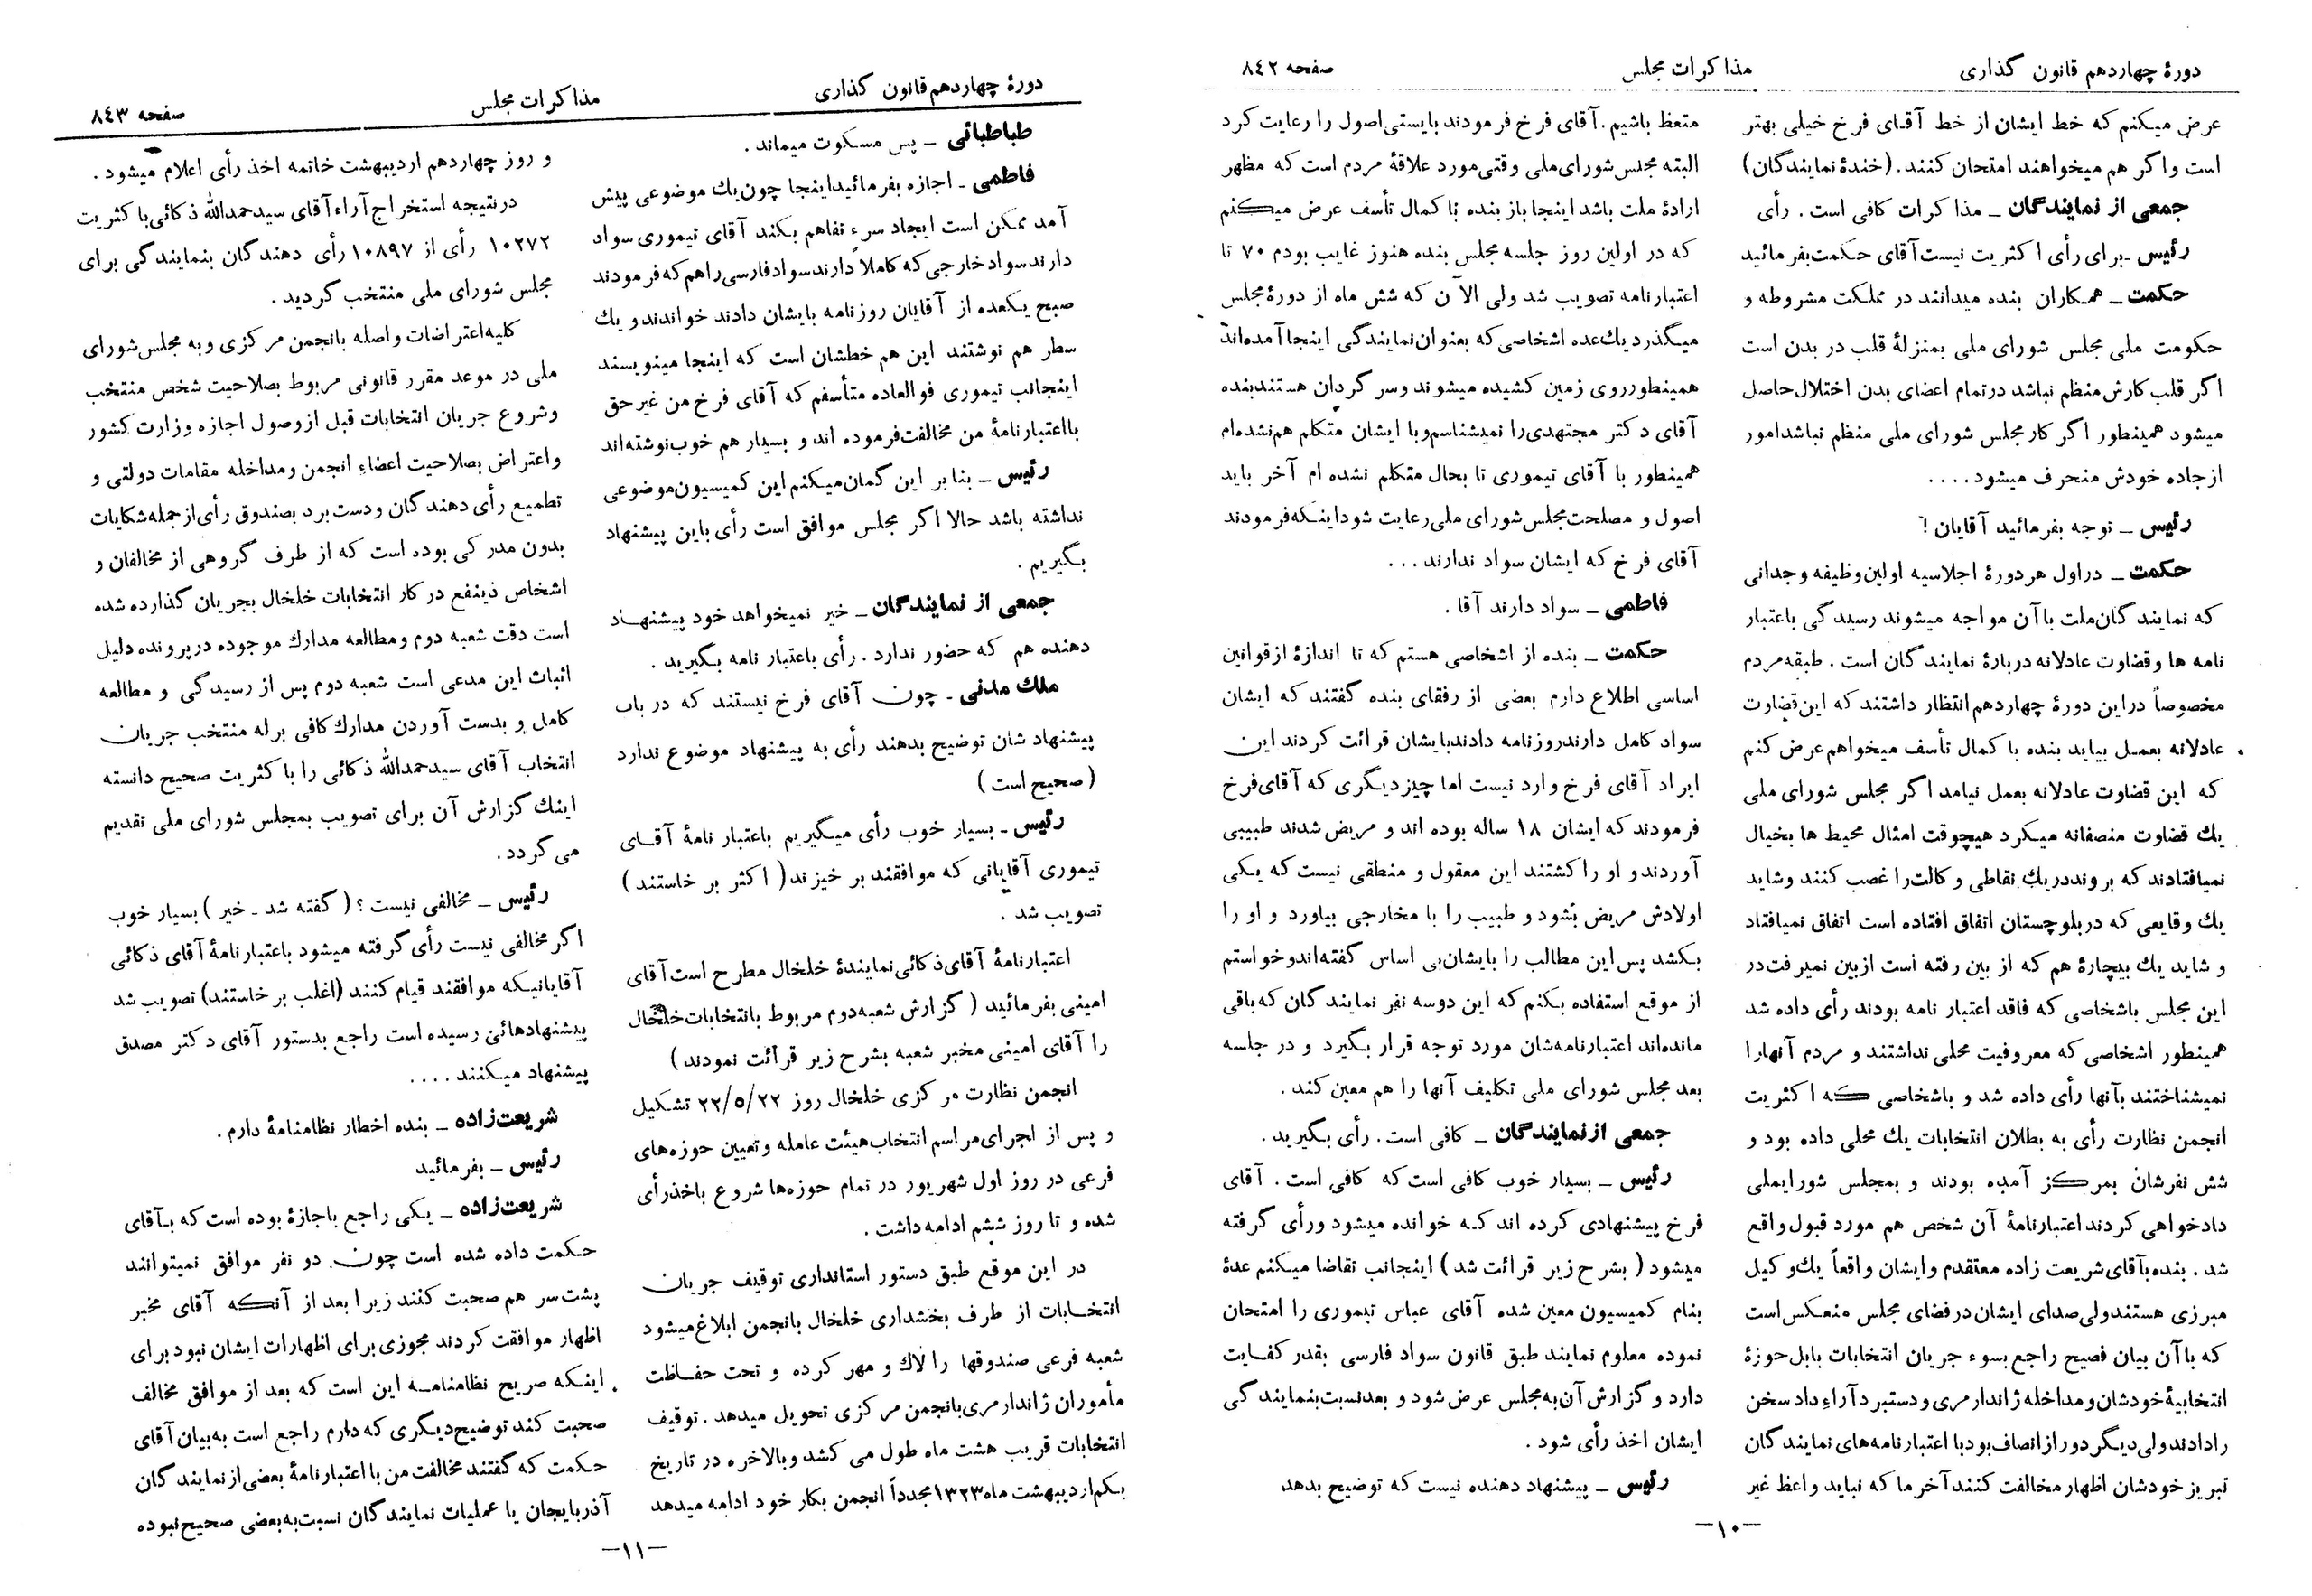 دورهٔ چهاردهم قانون گذاری
مذاکرات مجلس
صفحه ٨٤٢
عرض میکنم که خط ایشان از خط آقای فرخ خیلی بهتر
است و اگر هم میخواهند امتحان کنند. (خندهٔ نمایندگان)
جمعی از نمایندگان ـ مذاکرات کافی است. رأی
رئیس ـ برای رأی اکثریت نیست آقای حکمت بفرمائید
حکمت ـ همکاران بنده میدانند در مملکت مشروطه و
حکومت ملی مجلس شورای ملی بمنزلهٔ قلب در بدن است
اگر قلب کارش منظم نباشد در تمام اعضای بدن اختلال حاصل
میشود همینطور اگر کار مجلس شورای ملی منظم نباشد امور
از جاده خودش منحرف میشود....
رئیس ـ توجه بفرمائید آقایان!
حکمت ـ در اول هر دورهٔ اجلاسیه اولین وظیفه وجدانی
که نمایندگان ملت با آن مواجه میشوند رسیدگی باعتبار
نامه ها و قضاوت عادلانه دربارهٔ نمایندگان است. طبقه مردم
مخصوصاً در این دورهٔ چهاردهم انتظار داشتند که این قضاوت
عادلانه بعمل بیاید بنده با کمال تأسف میخواهم عرض کنم
که این قضاوت عادلانه بعمل نیامد اگر مجلس شورای ملی
یك قضاوت منصفانه میکرد هیچوقت امثال محیط ها بخیال
نمیافتادند که بروند در یك نقاطی وکالت را غصب کنند و شاید
یك وقایعی که در بلوچستان اتفاق افتاده است اتفاق نمیافتاد
و شاید یك بیچارهٔ هم که از بین رفته است از بین نمیرفت در
این مجلس باشخاصی که فاقد اعتبار نامه بودند رأی داده شد
همینطور اشخاصی که معروفیت محلی نداشتند و مردم آنها را
نمیشناختند بآنها رأی داده شد و باشخاصی که اکثریت
انجمن نظارت رأی به بطلان انتخابات یك محلی داده بود و
شش نفرشان بمرکز آمده بودند و بمجلس شورایملی
دادخواهی کردند اعتبارنامهٔ آن شخص هم مورد قبول واقع
شد. بنده بآقای شریعت زاده معتقدم و ایشان واقعاً یك وکیل
مبرزی هستند ولی صدای ایشان در فضای مجلس منعکس است
که با آن بیان فصیح راجع بسوء جریان انتخابات بابل حوزهٔ
انتخابیهٔ خودشان و مداخله ژاندارمری و دستبرد آراء داد سخن
را دادند ولی دیگر دور از انصاف بود با اعتبارنامه‌های نمایندگان
تبریز خودشان اظهار مخالفت کنند آخر ما که نباید واعظ غیر
متعظ باشیم. آقای فرخ فرمودند بایستی اصول را رعایت کرد
البته مجلس شورای ملی وقتی مورد علاقهٔ مردم است که مظهر
ارادهٔ ملت باشد اینجا باز بنده با کمال تأسف عرض میکنم
که در اولین روز جلسه مجلس بنده هنوز غایب بودم ۷۰ تا
اعتبارنامه تصویب شد ولی الآن که شش ماه از دورهٔ مجلس
میگذرد یك عده اشخاصی که بعنوان نمایندگی اینجا آمده‌اند
همینطور روی زمین کشیده میشوند و سر گردان هستند بنده
آقای دکتر مجتهدی را نمیشناسم و با ایشان متکلم هم نشده‌ام
همینطور با آقای تیموری تا بحال متکلم نشده ام آخر باید
اصول و مصلحت مجلس شورای ملی رعایت شود اینکه فرمودند
آقای فرخ که ایشان سواد ندارند...
فاطمی ـ سواد دارند آقا.
حکمت ـ بنده از اشخاصی هستم که تا اندازهٔ از قوانین
اساسی اطلاع دارم بعضی از رفقای بنده گفتند که ایشان
سواد کامل دارند روزنامه دادند بایشان قرائت کردند این
ایراد آقای فرخ وارد نیست اما چیز دیگری که آقای فرخ
فرمودند که ایشان ۱۸ ساله بوده اند و مریض شدند طبیبی
آوردند و او را کشتند این معقول و منطقی نیست که یکی
اولادش مریض بشود و طبیب را با مخارجی بیاورد و او را
بکشد پس این مطالب را بایشان بی اساس گفته‌اند و خواستم
از موقع استفاده بکنم که این دوسه نفر نمایندگان که باقی
مانده‌اند اعتبارنامه‌شان مورد توجه قرار بگیرد و در جلسه
بعد مجلس شورای ملی تکلیف آنها را هم معین کند.
جمعی از نمایندگان ـ کافی است. رأی بگیرید.
رئیس ـ بسیار خوب کافی است که کافی است. آقای
فرخ پیشنهادی کرده اند که خوانده میشود و رأی گرفته
میشود (بشرح زیر قرائت شد) اینجانب تقاضا میکنم عدهٔ
بنام کمیسیون معین شده آقای عباس تیموری را امتحان
نموده معلوم نمایند طبق قانون سواد فارسی بقدر کفایت
دارد و گزارش آن به مجلس عرض شود و بعد نسبت بنمایندگی
ایشان اخذ رأی شود.
رئیس ـ پیشنهاد دهنده نیست که توضیح بدهد
ـ۱۰ـ
دورهٔ چهاردهم قانون گذاری
مذاکرات مجلس
صفحه ٨٤٣
طباطبائی ـ پس مسکوت میماند.
فاطمی ـ اجازه بفرمائید اینجا چون یك موضوعی پیش
آمد ممکن است ایجاد سوء تفاهم بکند آقای تیموری سواد
دارند سواد خارجی که کاملاً دارند سواد فارسی را هم که فرمودند
صبح یکعده از آقایان روزنامه بایشان دادند خواندند و یك
سطر هم نوشتند این هم خطشان است که اینجا مینویسند
اینجانب تیموری فوالعاده متأسفم که آقای فرخ من غیر حق
با اعتبارنامهٔ من مخالفت فرموده اند و بسیار هم خوب نوشته‌اند
رئیس ـ بنابر این گمان میکنم این کمیسیون موضوعی
نداشته باشد حالا اگر مجلس موافق است رأی باین پیشنهاد
بگیریم.
جمعی از نمایندگان ـ خیر نمیخواهد خود پیشنهاد
دهنده هم که حضور ندارد. رأی باعتبار نامه بگیرید.
ملك مدنی ـ چون آقای فرخ نیستند که در باب
پیشنهاد شان توضیح بدهند رأی به پیشنهاد موضوع ندارد
(صحیح است)
رئیس ـ بسیار خوب رأی میگیریم باعتبار نامهٔ آقای
تیموری آقایانی که موافقند بر خیزند (اکثر بر خاستند)
تصویب شد.
اعتبارنامهٔ آقای ذکائی نمایندهٔ خلخال مطرح است آقای
امینی بفرمائید (گزارش شعبه دوم مربوط بانتخابات خلخال
را آقای امینی مخبر شعبه بشرح زیر قرائت نمودند)
انجمن نظارت مرکزی خلخال روز ۲۲/۵/۲۲ تشکیل
و پس از اجرای مراسم انتخاب هیئت عامله و تعیین حوزه‌های
فرعی در روز اول شهریور در تمام حوزه‌ها شروع باخذ رأی
شده و تا روز ششم ادامه داشت.
در این موقع طبق دستور استانداری توقیف جریان
انتخابات از طرف بخشداری خلخال بانجمن ابلاغ میشود
شعبه فرعی صندوقها را لاك و مهر کرده و تحت حفاظت
مأموران ژاندارمری بانجمن مرکزی تحویل میدهد. توقیف
انتخابات قریب هشت ماه طول می کشد و بالاخره در تاریخ
یکم اردیبهشت ماه ۱۳۲۳ مجدداً انجمن بکار خود ادامه میدهد
و روز چهاردهم اردیبهشت خاتمه اخذ رأی اعلام میشود.
در نتیجه استخراج آراء آقای سید حمدالله ذکائی با کثریت
۱۰۲۷۲ رأی از ۱۰۸۹۷ رأی دهندگان بنمایندگی برای
مجلس شورای ملی منتخب گردید.
کلیه اعتراضات واصله بانجمن مرکزی و به مجلس شورای
ملی در موعد مقرر قانونی مربوط بصلاحیت شخص منتخب
و شروع جریان انتخابات قبل از وصول اجازه وزارت کشور
و اعتراض بصلاحیت اعضاء انجمن و مداخله مقامات دولتی و
تطمیع رأی دهندگان و دست برد بصندوق رأی از جمله شکایات
بدون مدرکی بوده است که از طرف گروهی از مخالفان و
اشخاص ذینفع در کار انتخابات خلخال بجریان گذارده شده
است دقت شعبه دوم و مطالعه مدارك موجوده در پرونده دلیل
اثبات این مدعی است شعبه دوم پس از رسیدگی و مطالعه
کامل و بدست آوردن مدارك کافی بر له منتخب جریان
انتخاب آقای سید حمدالله ذکائی را با کثریت صحیح دانسته
اینك گزارش آن برای تصویب بمجلس شورای ملی تقدیم
می گردد.
رئیس ـ مخالفی نیست؟ (گفته شد ـ خیر) بسیار خوب
اگر مخالفی نیست رأی گرفته میشود باعتبارنامهٔ آقای ذکائی
آقایانیکه موافقند قیام کنند (اغلب بر خاستند) تصویب شد
پیشنهادهائی رسیده است راجع بدستور آقای دکتر مصدق
پیشنهاد میکنند....
شریعت‌زاده ـ بنده اخطار نظامنامهٔ دارم.
رئیس ـ بفرمائید
شریعت‌زاده ـ یکی راجع باجازهٔ بوده است که بآقای
حکمت داده شده است چون دو نفر موافق نمیتوانند
پشت سر هم صحبت کنند زیرا بعد از آنکه آقای مخبر
اظهار موافقت کردند مجوزی برای اظهارات ایشان نبود برای
اینکه صریح نظامنامه این است که بعد از موافق مخالف
صحبت کند توضیح دیگری که دارم راجع است به بیان آقای
حکمت که گفتند مخالفت من با اعتبارنامهٔ بعضی از نمایندگان
آذربایجان یا عملیات نمایندگان نسبت به بعضی صحیح نبوده
ـ۱۱ـ